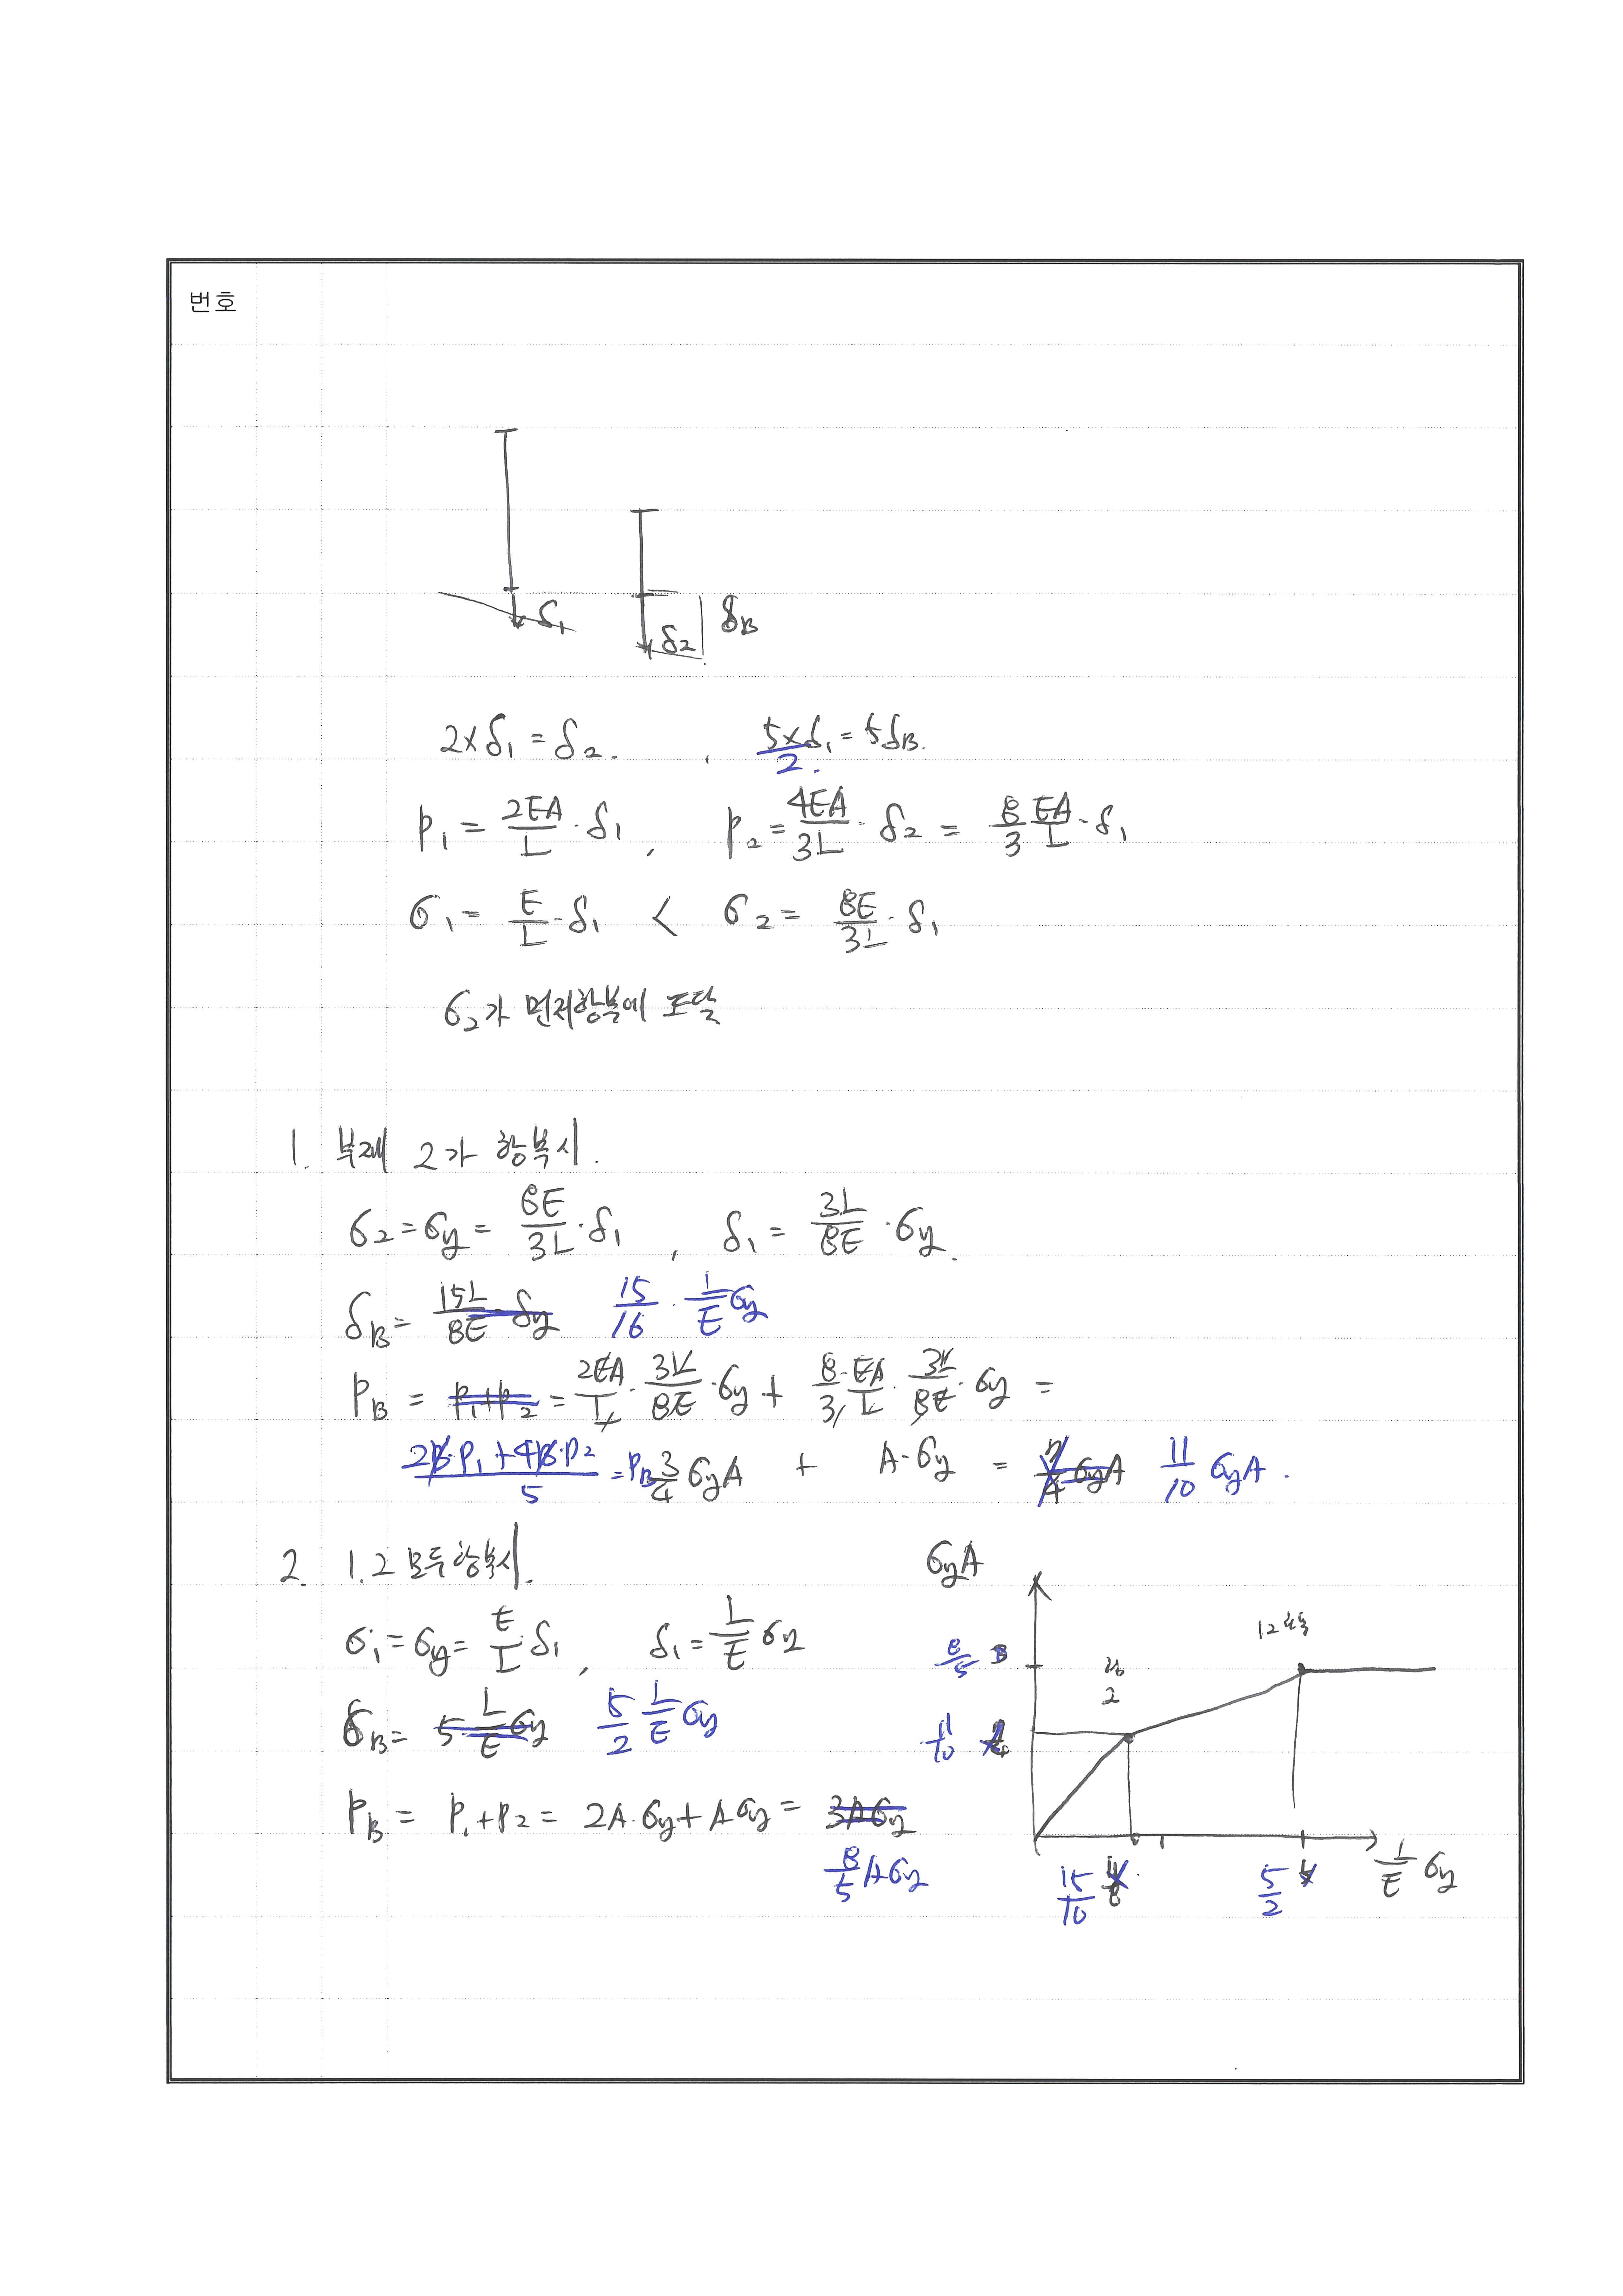 번호
δ₁
δ₂
δB
2×δ₁ = δ₂. , 5×δ₁/2. = 5δB.
P₁ = 2EA/L · δ₁ , P₂ = 4EA/3L · δ₂ = 8/3 EA/L · δ₁
σ₁ = E/L · δ₁ < σ₂ = 8E/3L · δ₁
σ₂가 먼저항복에 도달
1. 부재 2가 항복시.
σ₂ = σy = 8E/3L · δ₁ , δ₁ = 3L/8E · σy.
δB = 15L/8E · δy 15/16 · L/E σy
PB = P₁+P₂ = 2EA/L · 3L/8E · σy + 8/3 · EA/L · 3L/8E · σy =
2B·P₁ + 4B·P₂ / 5 = PB 3/4 σyA + A·σy = 7/4 σyA 11/10 σyA.
2. 1.2 모두항복시.
σ₁ = σy = E/L δ₁ , δ₁ = L/E σy
δB = 5 L/E σy 5/2 L/E σy
PB = P₁+P₂ = 2A·σy + Aσy = 3Aσy
8/5 Aσy
σyA
8/5 3
11/10
2
15/10
5/2 5
L/E σy